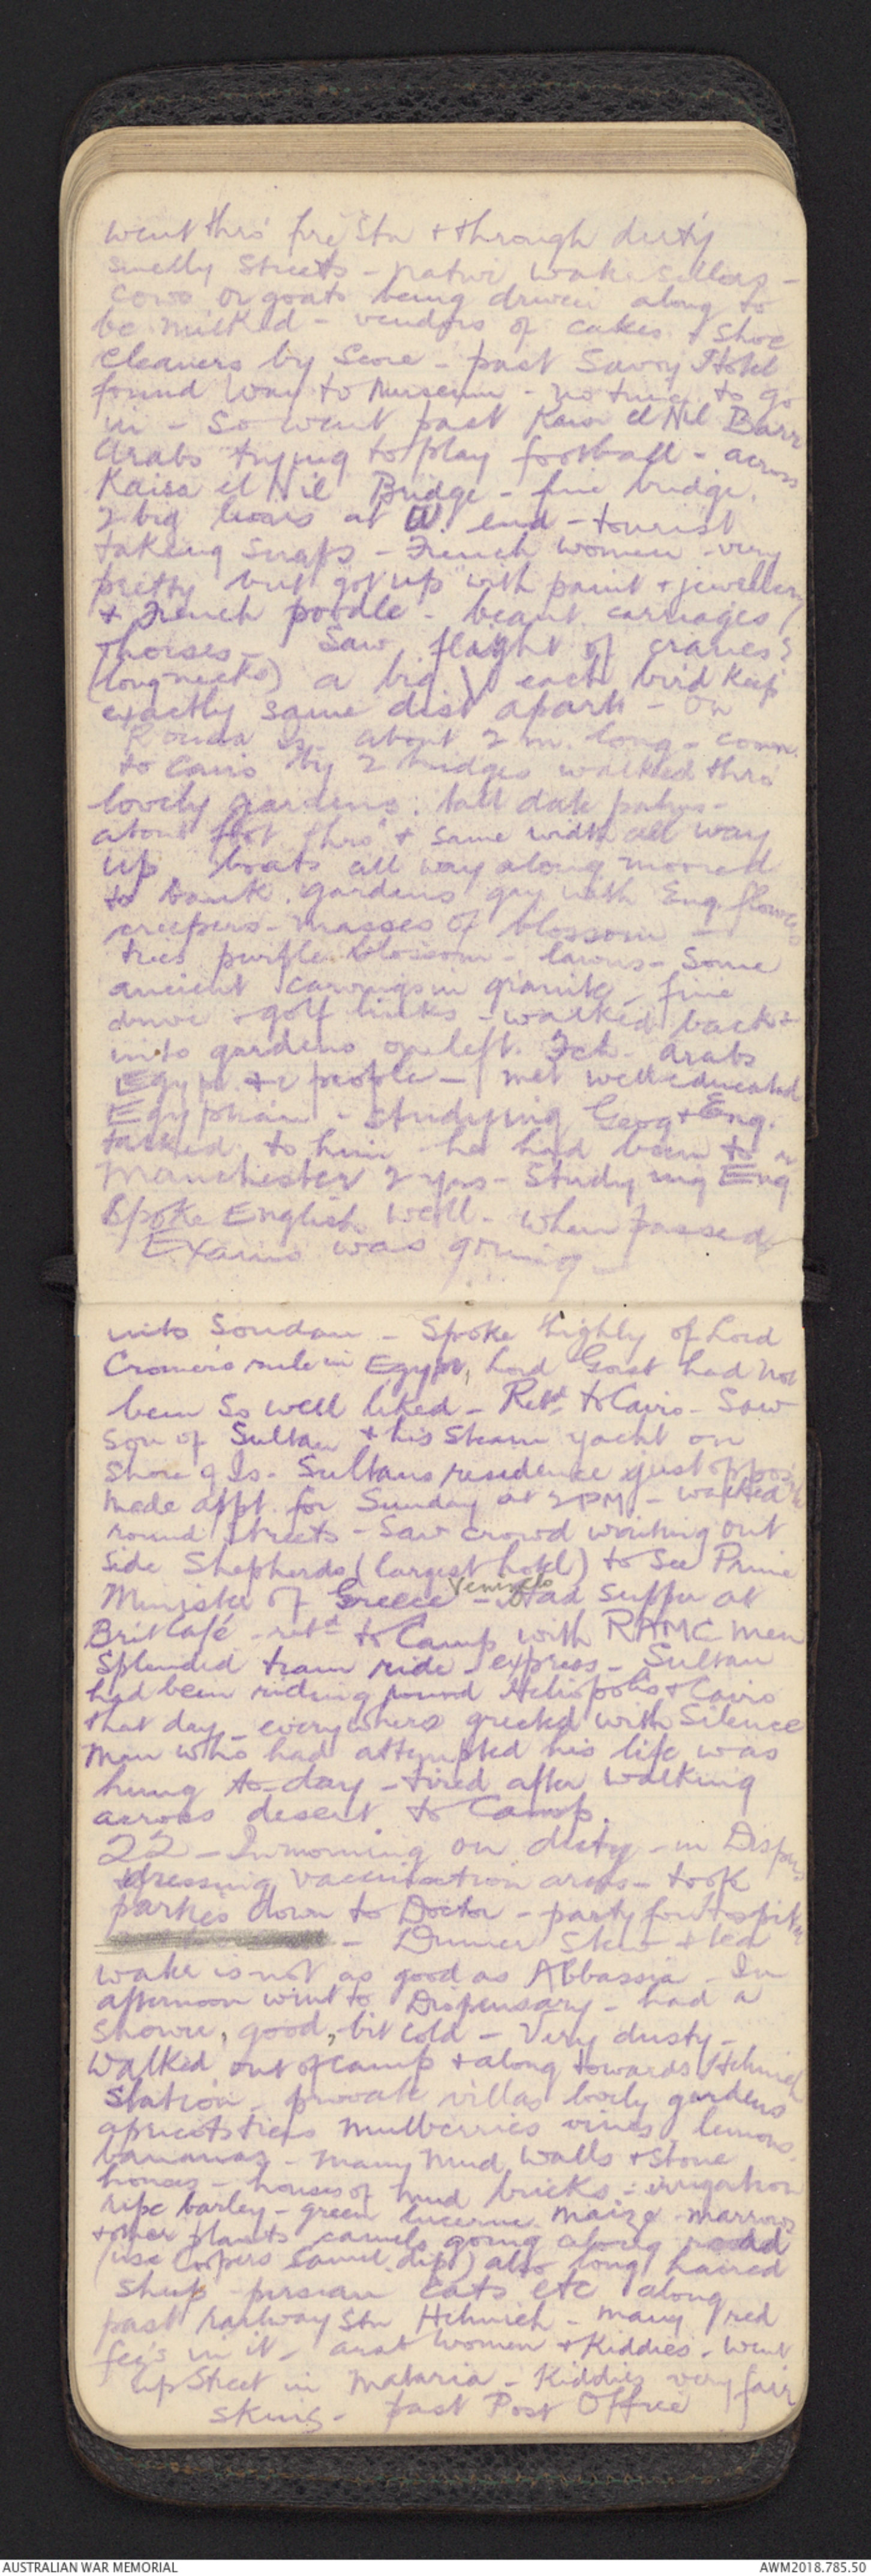 went thro' fire Stn & through dirty
smelly streets - native water sellers -
cows or goats being driven along to
be milked - vendors of cakes & shoe
cleaners by score - past Savoy Hotel
found way to Museum - no time to go
in - so went past Kasr el Nil Barr
Arabs trying to play football - across
Kaisa el Nil Bridge - fine bridge.
2 big lions at W. end - tourist
taking snaps - French women - very
pretty but got up with paint & jewellery
& French poodle - beaut. carriages /
& horses - Saw flight of cranes?
(long necks) a big V each bird keep
exactly same dist apart - On
Rouda Is. about 2 m. long - conn.
to Cairo by 2 bridges walked thro
lovely gardens. tall date palms -
about foot thro' & same width all way
up boats all way along moored
to bank. gardens gay with Eng. flowers
creepers - masses of blossom -
trees purple blossom - lawns - Some
ancient carvings in granite - fine
drive & golf links - walked back &
into gardens on left. Fch. Arabs
Egypt. people - met well educated
Egyptian - studying Geog & Eng.
talked to him he had been to
Manchester 2 yrs - Studying Eng
Spoke English well - when passed
Exams was going
into Soudan - Spoke highly of Lord
Cromers rule in Egypt, Lord Gorst had not
been so well liked - Retd to Cairo - Saw
son of Sultan & his steam yacht on
shore of Is. Sultans residence just opposite
made appt. for Sunday at 2PM - walked
round streets - Saw crowd waiting out
side Shepherds (largest hotel) to see Prime
Minister of Greece Venizelo - Had supper at
Brit Café - retd to Camp with RAMC men
Splendid tram ride - express - Sultan
had been riding round Heliopolis & Cairo
that day - everywhere greeted with silence
Man who had attempted his life was
hung to-day - tired after walking
across desert to Camp.
22 - In morning on duty - in Dispen
dressing vaccination arms - took
parties down to Doctor - party for Hospital
- Dinner Stew & tea
water is not as good as Abbassia - In
afternoon went to Dispensary - had a
shower, good, bit cold - Very dusty -
Walked out of camp & along towards Helmieh
Station. private villas lovely gardens
apricots trees mulberries vines lemons
bananas - many mud walls & stone
houses - houses of mud bricks - irrigation
ripe barley - green lucerne maize marrows
& other plants camels going along road
(use Coopers dip) also long haired
sheep - persian cats etc along
past railway Stn Helmieh - many red
fez's in it - arab women & Kiddies. Went
up Street in Mataria - Kiddies very fair
skins - past Post Office
AUSTRALIAN WAR MEMORIAL
AWM2018.785.50